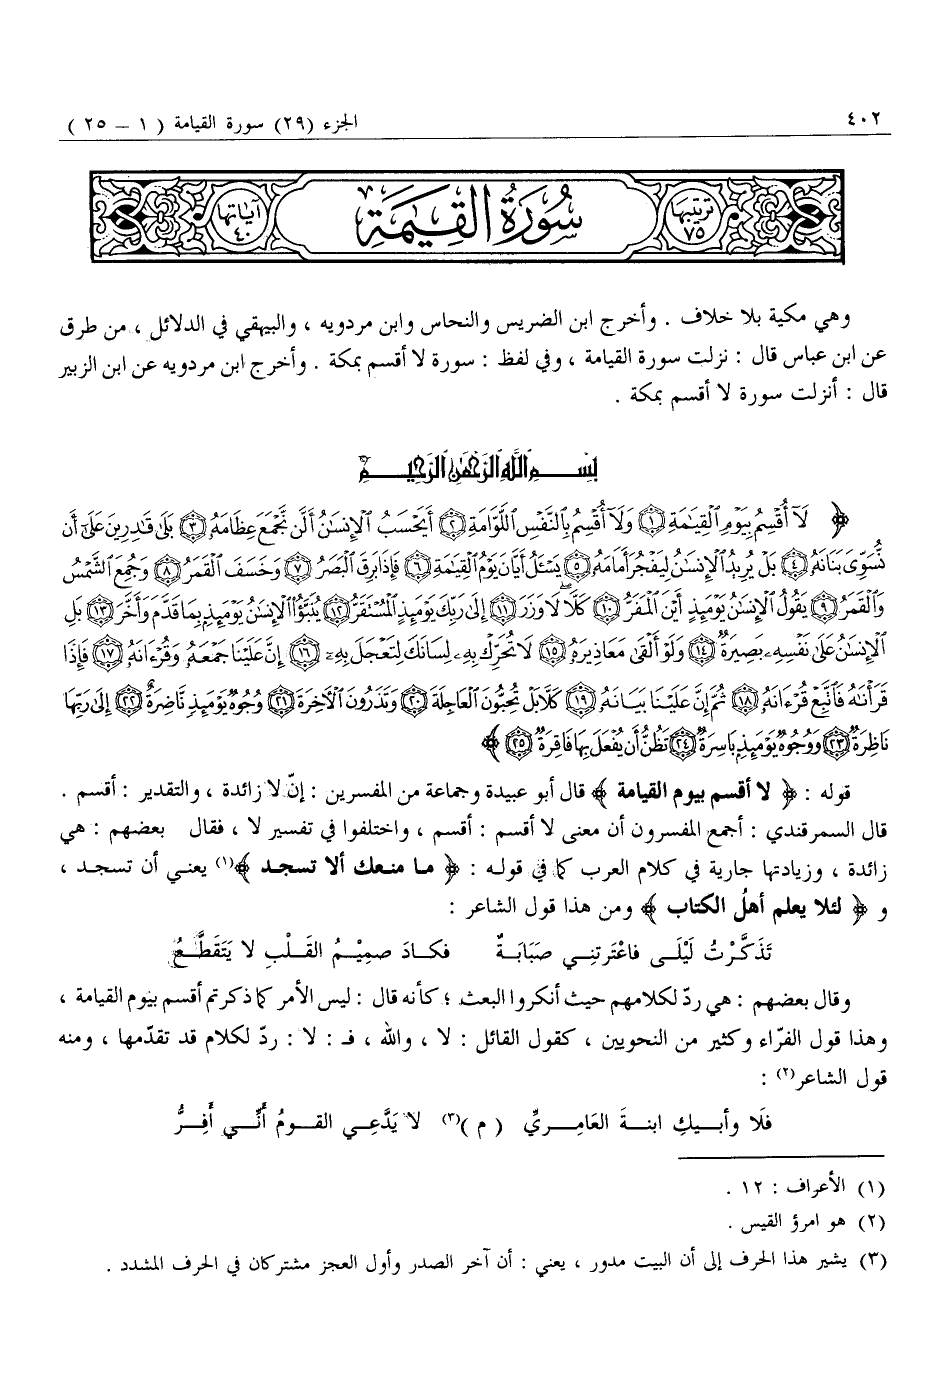 ٤٠٢
الجزء (٢٩) سورة القيامة ( ١ – ٢٥ )
ترتيبها ٧٥
سُورَةُ القِيَٰمَةِ
آياتها ٤٠
وهي مكية بلا خلاف . وأخرج ابن الضريس والنحاس وابن مردويه ، والبيهقي في الدلائل ، من طرق
عن ابن عباس قال : نزلت سورة القيامة ، وفي لفظ : سورة لا أقسم بمكة . وأخرج ابن مردويه عن ابن الزبير
قال : أنزلت سورة لا أقسم بمكة .
بِسْمِ اللَّهِ الرَّحْمَٰنِ الرَّحِيمِ
﴿ لَآ أُقْسِمُ بِيَوْمِ ٱلْقِيَٰمَةِ ١ وَلَآ أُقْسِمُ بِٱلنَّفْسِ ٱللَّوَّامَةِ ٢ أَيَحْسَبُ ٱلْإِنسَٰنُ أَلَّن نَّجْمَعَ عِظَامَهُۥ ٣ بَلَىٰ قَٰدِرِينَ عَلَىٰٓ أَن
نُّسَوِّىَ بَنَانَهُۥ ٤ بَلْ يُرِيدُ ٱلْإِنسَٰنُ لِيَفْجُرَ أَمَامَهُۥ ٥ يَسْـَٔلُ أَيَّانَ يَوْمُ ٱلْقِيَٰمَةِ ٦ فَإِذَا بَرِقَ ٱلْبَصَرُ ٧ وَخَسَفَ ٱلْقَمَرُ ٨ وَجُمِعَ ٱلشَّمْسُ
وَٱلْقَمَرُ ٩ يَقُولُ ٱلْإِنسَٰنُ يَوْمَئِذٍ أَيْنَ ٱلْمَفَرُّ ١٠ كَلَّا لَا وَزَرَ ١١ إِلَىٰ رَبِّكَ يَوْمَئِذٍ ٱلْمُسْتَقَرُّ ١٢ يُنَبَّؤُا۟ ٱلْإِنسَٰنُ يَوْمَئِذٍۭ بِمَا قَدَّمَ وَأَخَّرَ ١٣ بَلِ
ٱلْإِنسَٰنُ عَلَىٰ نَفْسِهِۦ بَصِيرَةٌ ١٤ وَلَوْ أَلْقَىٰ مَعَاذِيرَهُۥ ١٥ لَا تُحَرِّكْ بِهِۦ لِسَانَكَ لِتَعْجَلَ بِهِۦٓ ١٦ إِنَّ عَلَيْنَا جَمْعَهُۥ وَقُرْءَانَهُۥ ١٧ فَإِذَا
قَرَأْنَٰهُ فَٱتَّبِعْ قُرْءَانَهُۥ ١٨ ثُمَّ إِنَّ عَلَيْنَا بَيَانَهُۥ ١٩ كَلَّا بَلْ تُحِبُّونَ ٱلْعَاجِلَةَ ٢٠ وَتَذَرُونَ ٱلْءَاخِرَةَ ٢١ وُجُوهٌ يَوْمَئِذٍ نَّاضِرَةٌ ٢٢ إِلَىٰ رَبِّهَا
نَاظِرَةٌ ٢٣ وَوُجُوهٌ يَوْمَئِذٍۭ بَاسِرَةٌ ٢٤ تَظُنُّ أَن يُفْعَلَ بِهَا فَاقِرَةٌ ٢٥ ﴾
قوله : ﴿ لا أقسم بيوم القيامة ﴾ قال أبو عبيدة وجماعة من المفسرين : إنّ لا زائدة ، والتقدير : أقسم .
قال السمرقندي : أجمع المفسرون أن معنى لا أقسم : أقسم ، واختلفوا في تفسير لا ، فقال بعضهم : هي
زائدة ، وزيادتها جارية في كلام العرب كما في قوله : ﴿ ما منعك ألا تسجد ﴾(١) يعني أن تسجد ،
و ﴿ لئلا يعلم أهلُ الكتاب ﴾ ومن هذا قول الشاعر :
تَذَكَّرْتُ لَيْلَى فاعْتَرتني صَبَابَةٌ فكادَ صمِيْمُ القَلْبِ لا يَتَقَطَّعُ
وقال بعضهم : هي ردّ لكلامهم حيث أنكروا البعث ؛ كأنه قال : ليس الأمر كما ذكرتم أقسم بيوم القيامة ،
وهذا قول الفرّاء وكثير من النحويين ، كقول القائل : لا ، والله ، فـ : لا : ردّ لكلام قد تقدّمها ، ومنه
قول الشاعر(٢) :
فلَا وأبيكِ ابنةَ العَامِريِّ ( م )(٣) لا يَدَّعِي القومُ أَنِّي أَفِرُّ
(١) الأعراف : ١٢ .
(٢) هو امرؤ القيس .
(٣) يشير هذا الحرف إلى أن البيت مدور ، يعني : أن آخر الصدر وأول العجز مشتركان في الحرف المشدد .